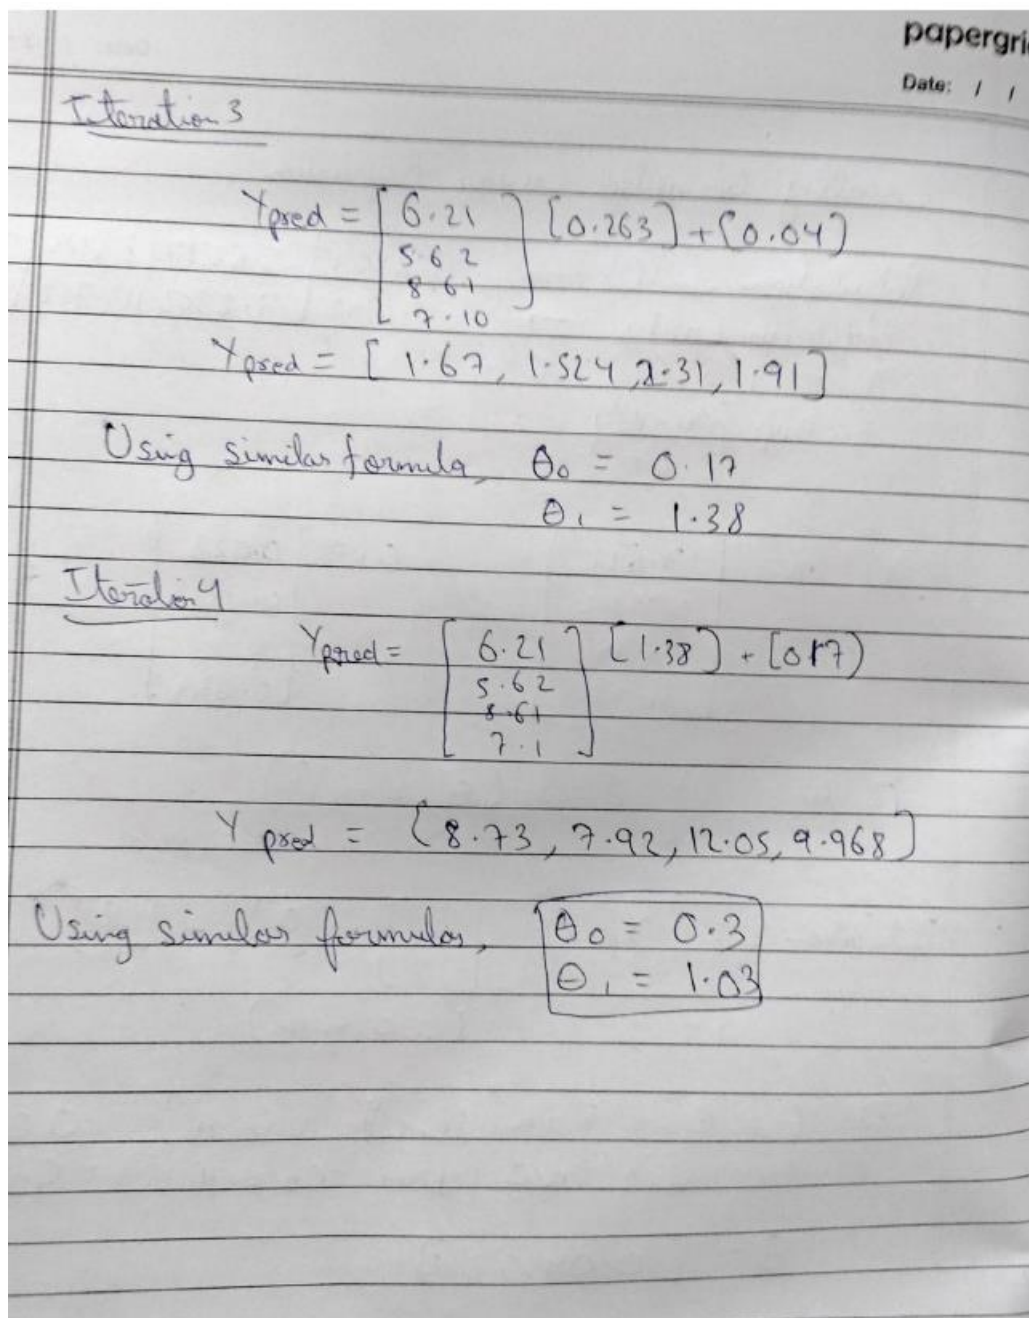 papergri
Date: / /
Iteration 3
Ypred = [6.21 5.62 8.61 7.10] [0.263] + [0.04]
Ypred = [1.67, 1.524, 2.31, 1.91]
Using similar formula, θ0 = 0.17
θ1 = 1.38
Iteration 4
Ypred = [6.21 5.62 8.61 7.1] [1.38] + [0.17]
Ypred = [8.73, 7.92, 12.05, 9.968]
Using similar formulas, θ0 = 0.3
θ1 = 1.03